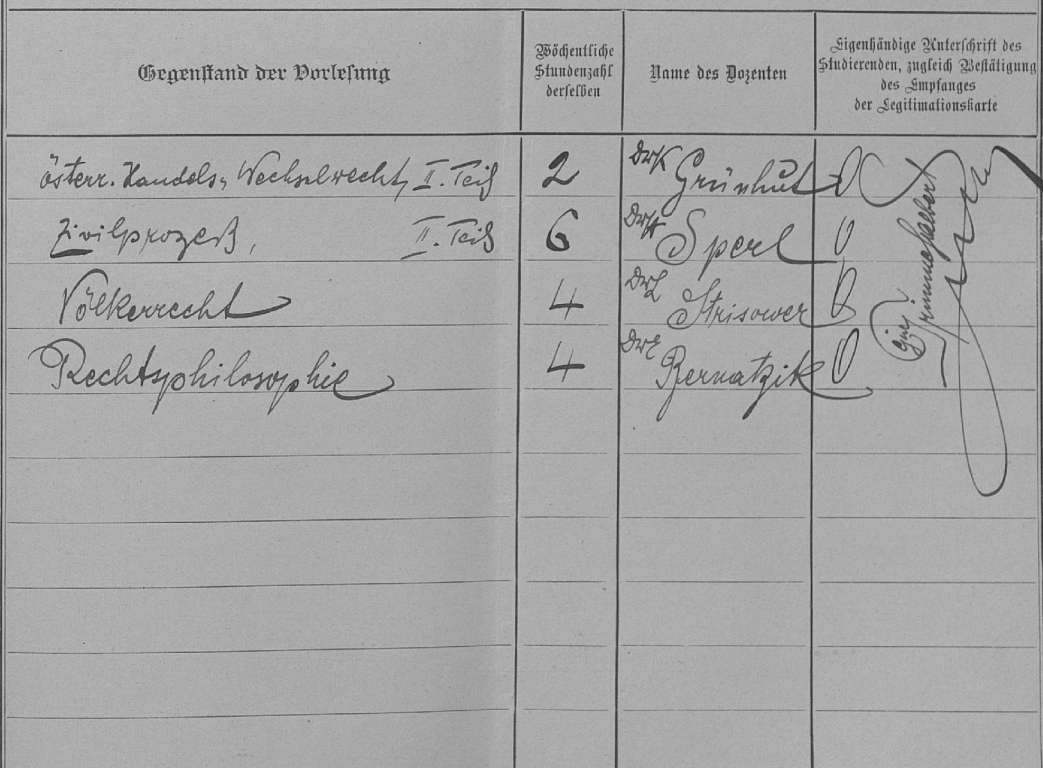 Gegenstand der Vorlesung
Wöchentliche
Stundenzahl
derselben
Name des Dozenten
Eigenhändige Unterschrift des
Studierenden, zugleich Bestätigung
des Empfanges
der Legitimationskarte
österr. Handels, Wechselrecht, II. Teil 2 Grünhut
Zivilprozeß, II. Teil 6 Sperl
Völkerrecht 4 Strisower
Rechtsphilosophie 4 Bernatzik